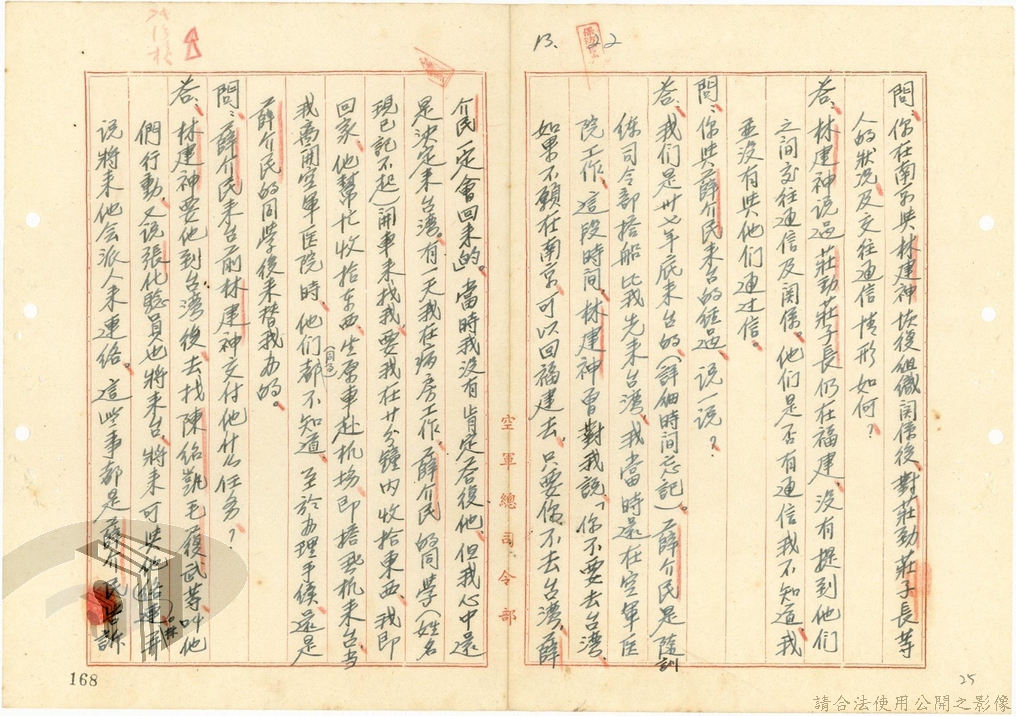 13. 22
問：你在南京與林建神恢復組織関係後，對莊勁莊子長等
人的狀況及交往通信情形如何？
答：林建神說过莊勁莊子長仍在福建，沒有提到他們
之间交往通信及関係。他們是否有通信我不知道，我
並沒有與他們通过信。
問：你與薛介民來台的経过，說一說？
答：我们是卅七年底来台的（詳細時间忘記）薛介民是随訓
练司令部搭船比我先来台湾，我當時還在空軍医
院工作，這段時间，林建神曾對我說「你不要去台湾，
如果不願在南京，可以回福建去，只要你不去台湾，薛
空軍總司令部
介民一定會回来的」。當時我沒有肯定荅復他，但我心中還
是決定来台湾。有一天我在病房工作，薛介民的同学（姓名
現已記不起）開車来找我，要我在廿分鐘内收拾東西，我即
回家，他幫忙收拾东西，坐原車赴机場即搭飛机来台，当
我离開空軍医院時，他们都不知道，至於办理手續，還是
（同事）
薛介民的同学後来替我办的。
問：薛介民来台前林建神交付他什么任务？
答：林建神要他到台湾後去找陳紹凱、毛履武等，叫他
們行動，又說張化聪員也將来台，將来可與他聯絡，并
說將来他会派人来連络。這些事都是薛介民告訴
168
25
請合法使用公開之影像